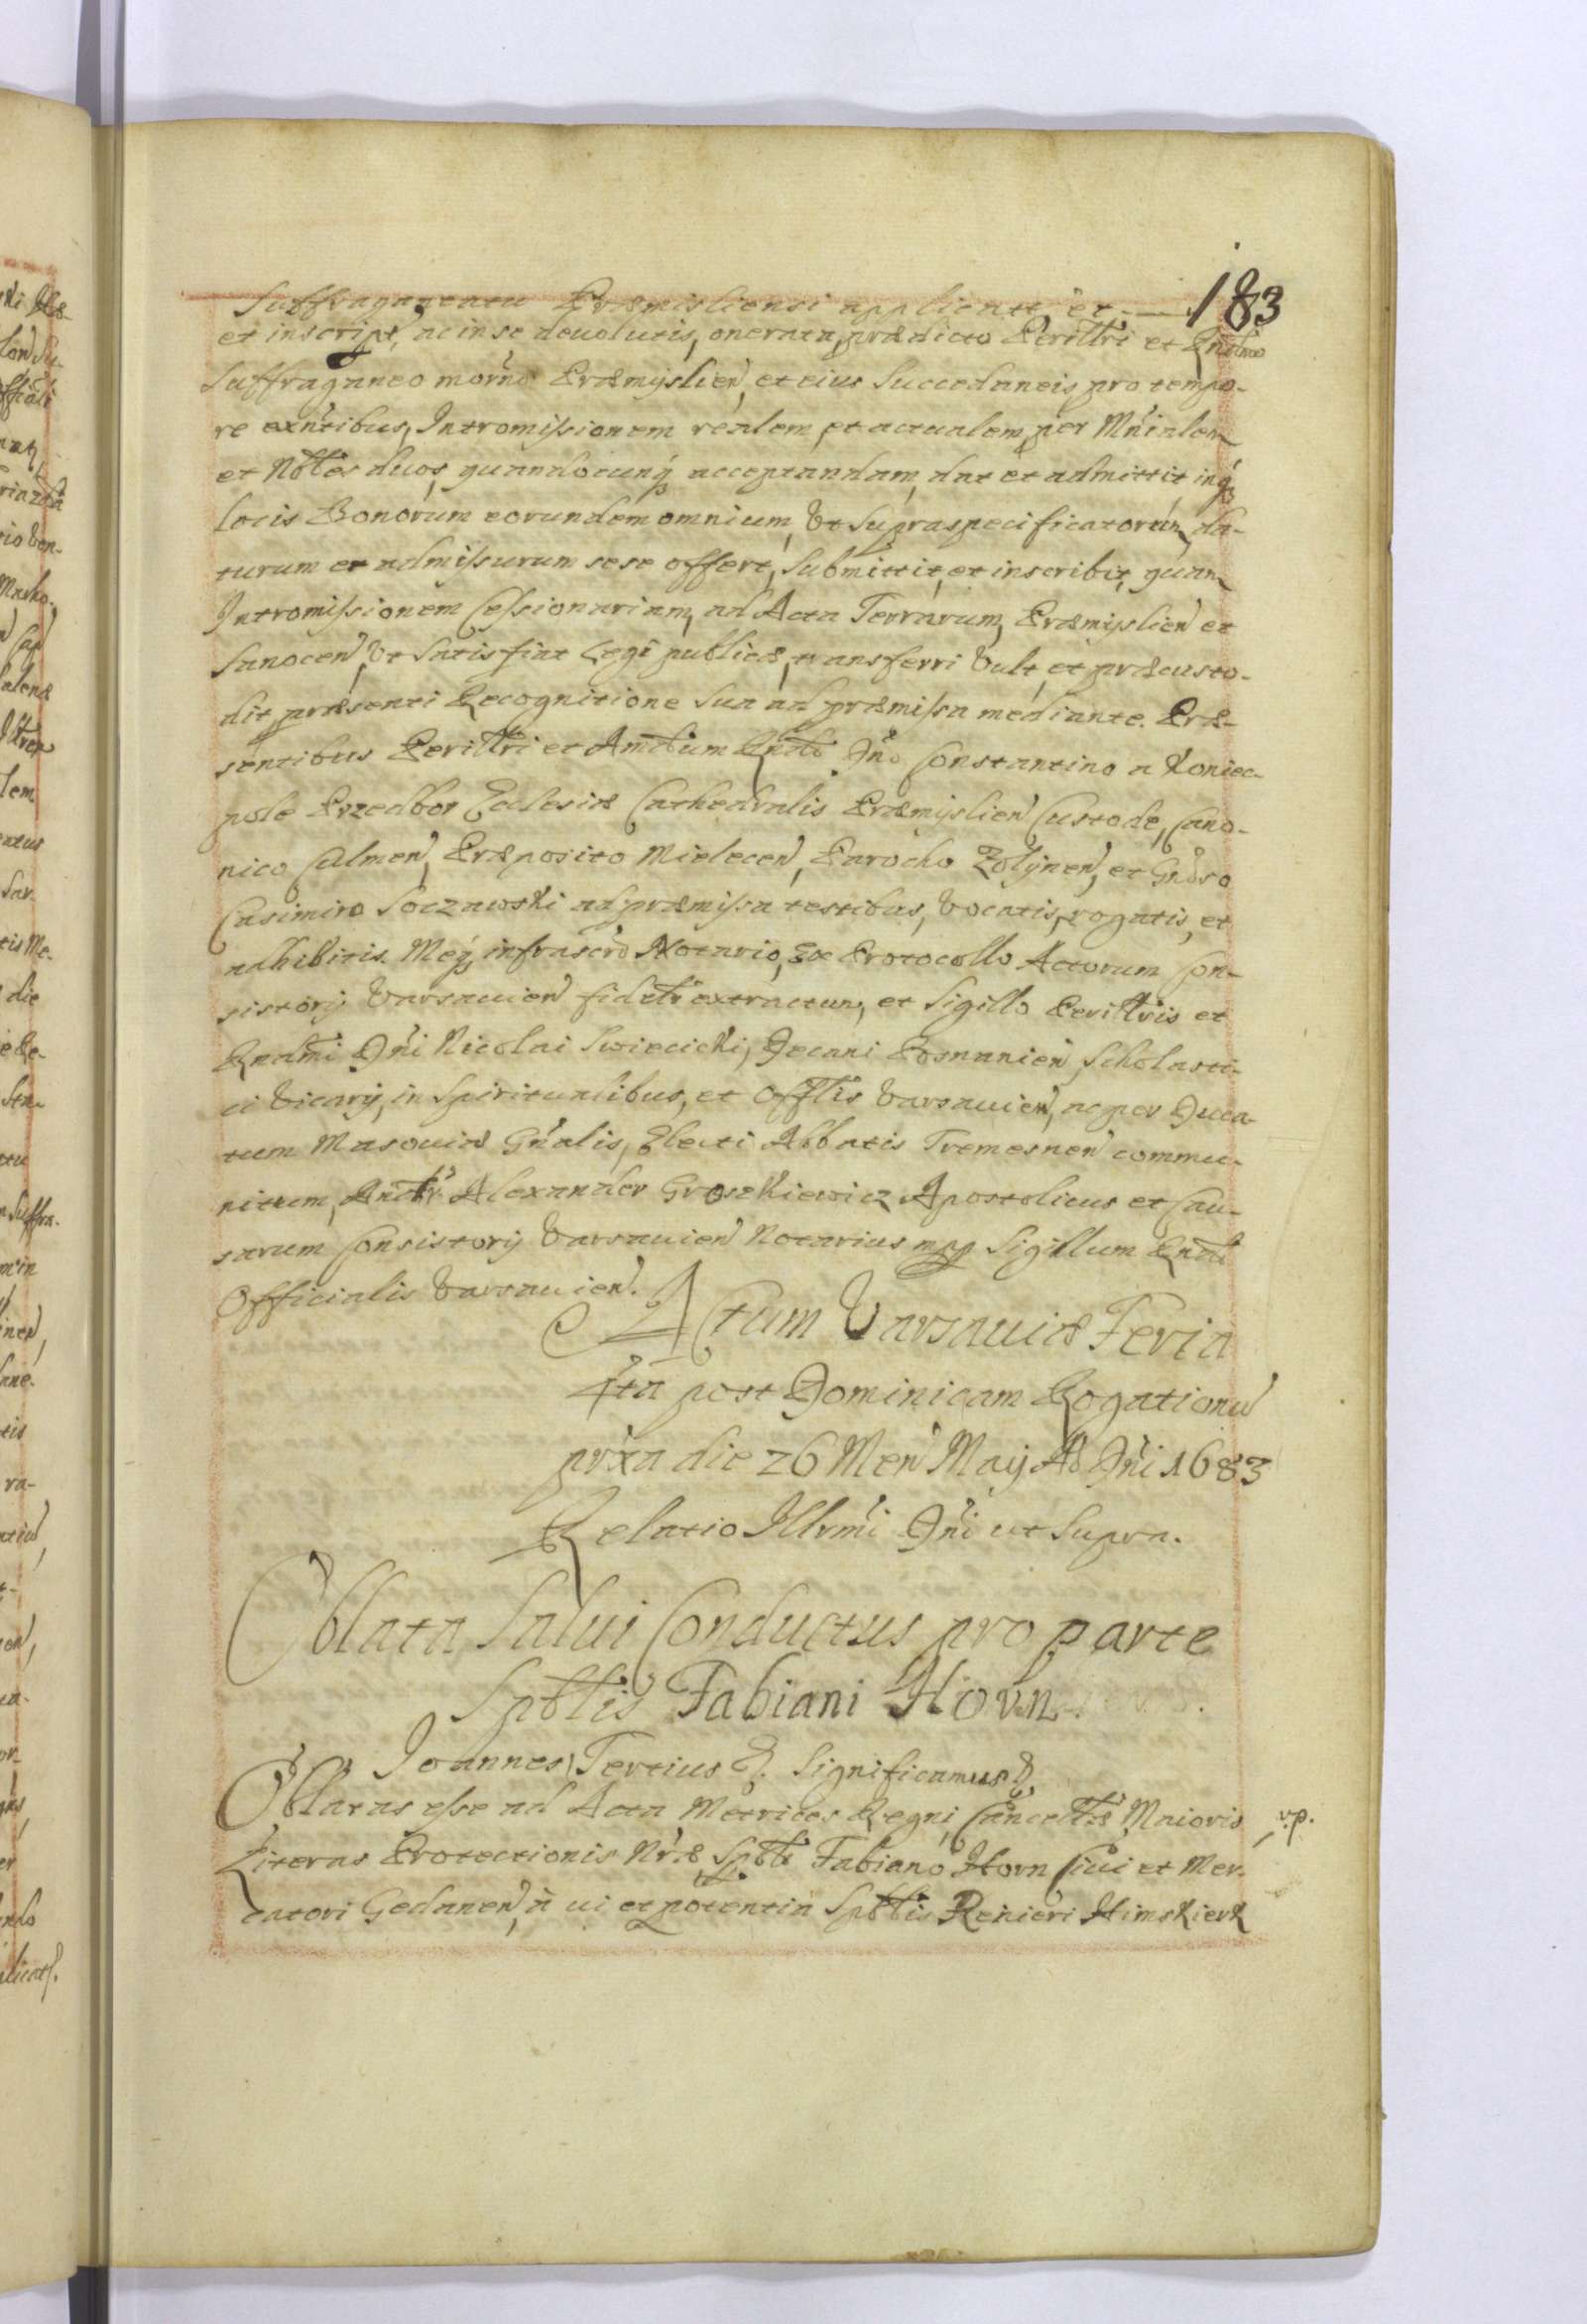 183
Suffraganeatu Præmisliensi applicatt, et
et inscript, ac in se deuolutis, onerata, prædicto Perillri et Rndmo
Suffraganeo morno Præmyslien, et eius Succedaneis pro tempo-
re exntibus, Intromissionem realem, et actualem, per Mnialem
et Nobles duos, quandocunq acceptandam, dat et admittit, inq
locis Bonorum eorundem omnium, Vt Supraspecificatorum, da-
turum et admissurum sese offert, Submittit, et inscribit, quam
Intromissionem Cessionariam, ad Acta Terrarum, Præmyslien et
Sanocen, Vt Satisfiat Legi publicæ, transferri Vult, et præcusto-
dit, præsenti Recognitione Sua ad præmissa mediante. Præ-
sentibus Perillri et Amdum Rndo Dno Constantino a Koniec-
pole Przedbor Ecclesiæ Cathedralis Præmyslien Custode, Cano-
nico Culmen, Præposito Mielecen, Parocho Zolynen, et Gnoso
Casimiro Soczawski ad præmissa testibus, Vocatis, rogatis, et
adhibitis. Meq infrascro Notario, Ex Protocollo Actorum Con-
sistorij Varsauien fidelr extractum, et Sigillo Perillris et
Rndmi Dni Nicolai Swiecicki, Decani Posnanien, Scholasti-
ci Vicarij, in Spiritualibus, et Offlis Varsauien, ac per Duca-
tum Masouiæ Gnalis, Electi Abbatis Tremesnen commu-
nitum, Andr Alexander Groszkiewicz Apostolicus et Cau-
sarum Consistorij Varsauien Notarius mpp Sigillum Rndi
Officialis Varsauien.
Actum Varsauiæ Feria
4ta post Dominicam Rogationu
prxa die 26 Men Maij Ao Dni 1683
Relatio Illrmi Dni ut Supra.
Oblata Salui Conductus pro parte
Spblis Fabiani Horn.
Joannes Tertius &. Significamus &.
Oblatas esse ad Acta Metrices Regni, Cancellæ Maioris v.p.
Literas Protectionis Nræ Spbli Fabiano Horn Ciui et Mer-
catori Gedanen, à ui et potentia Spblis Renieri Himskierk